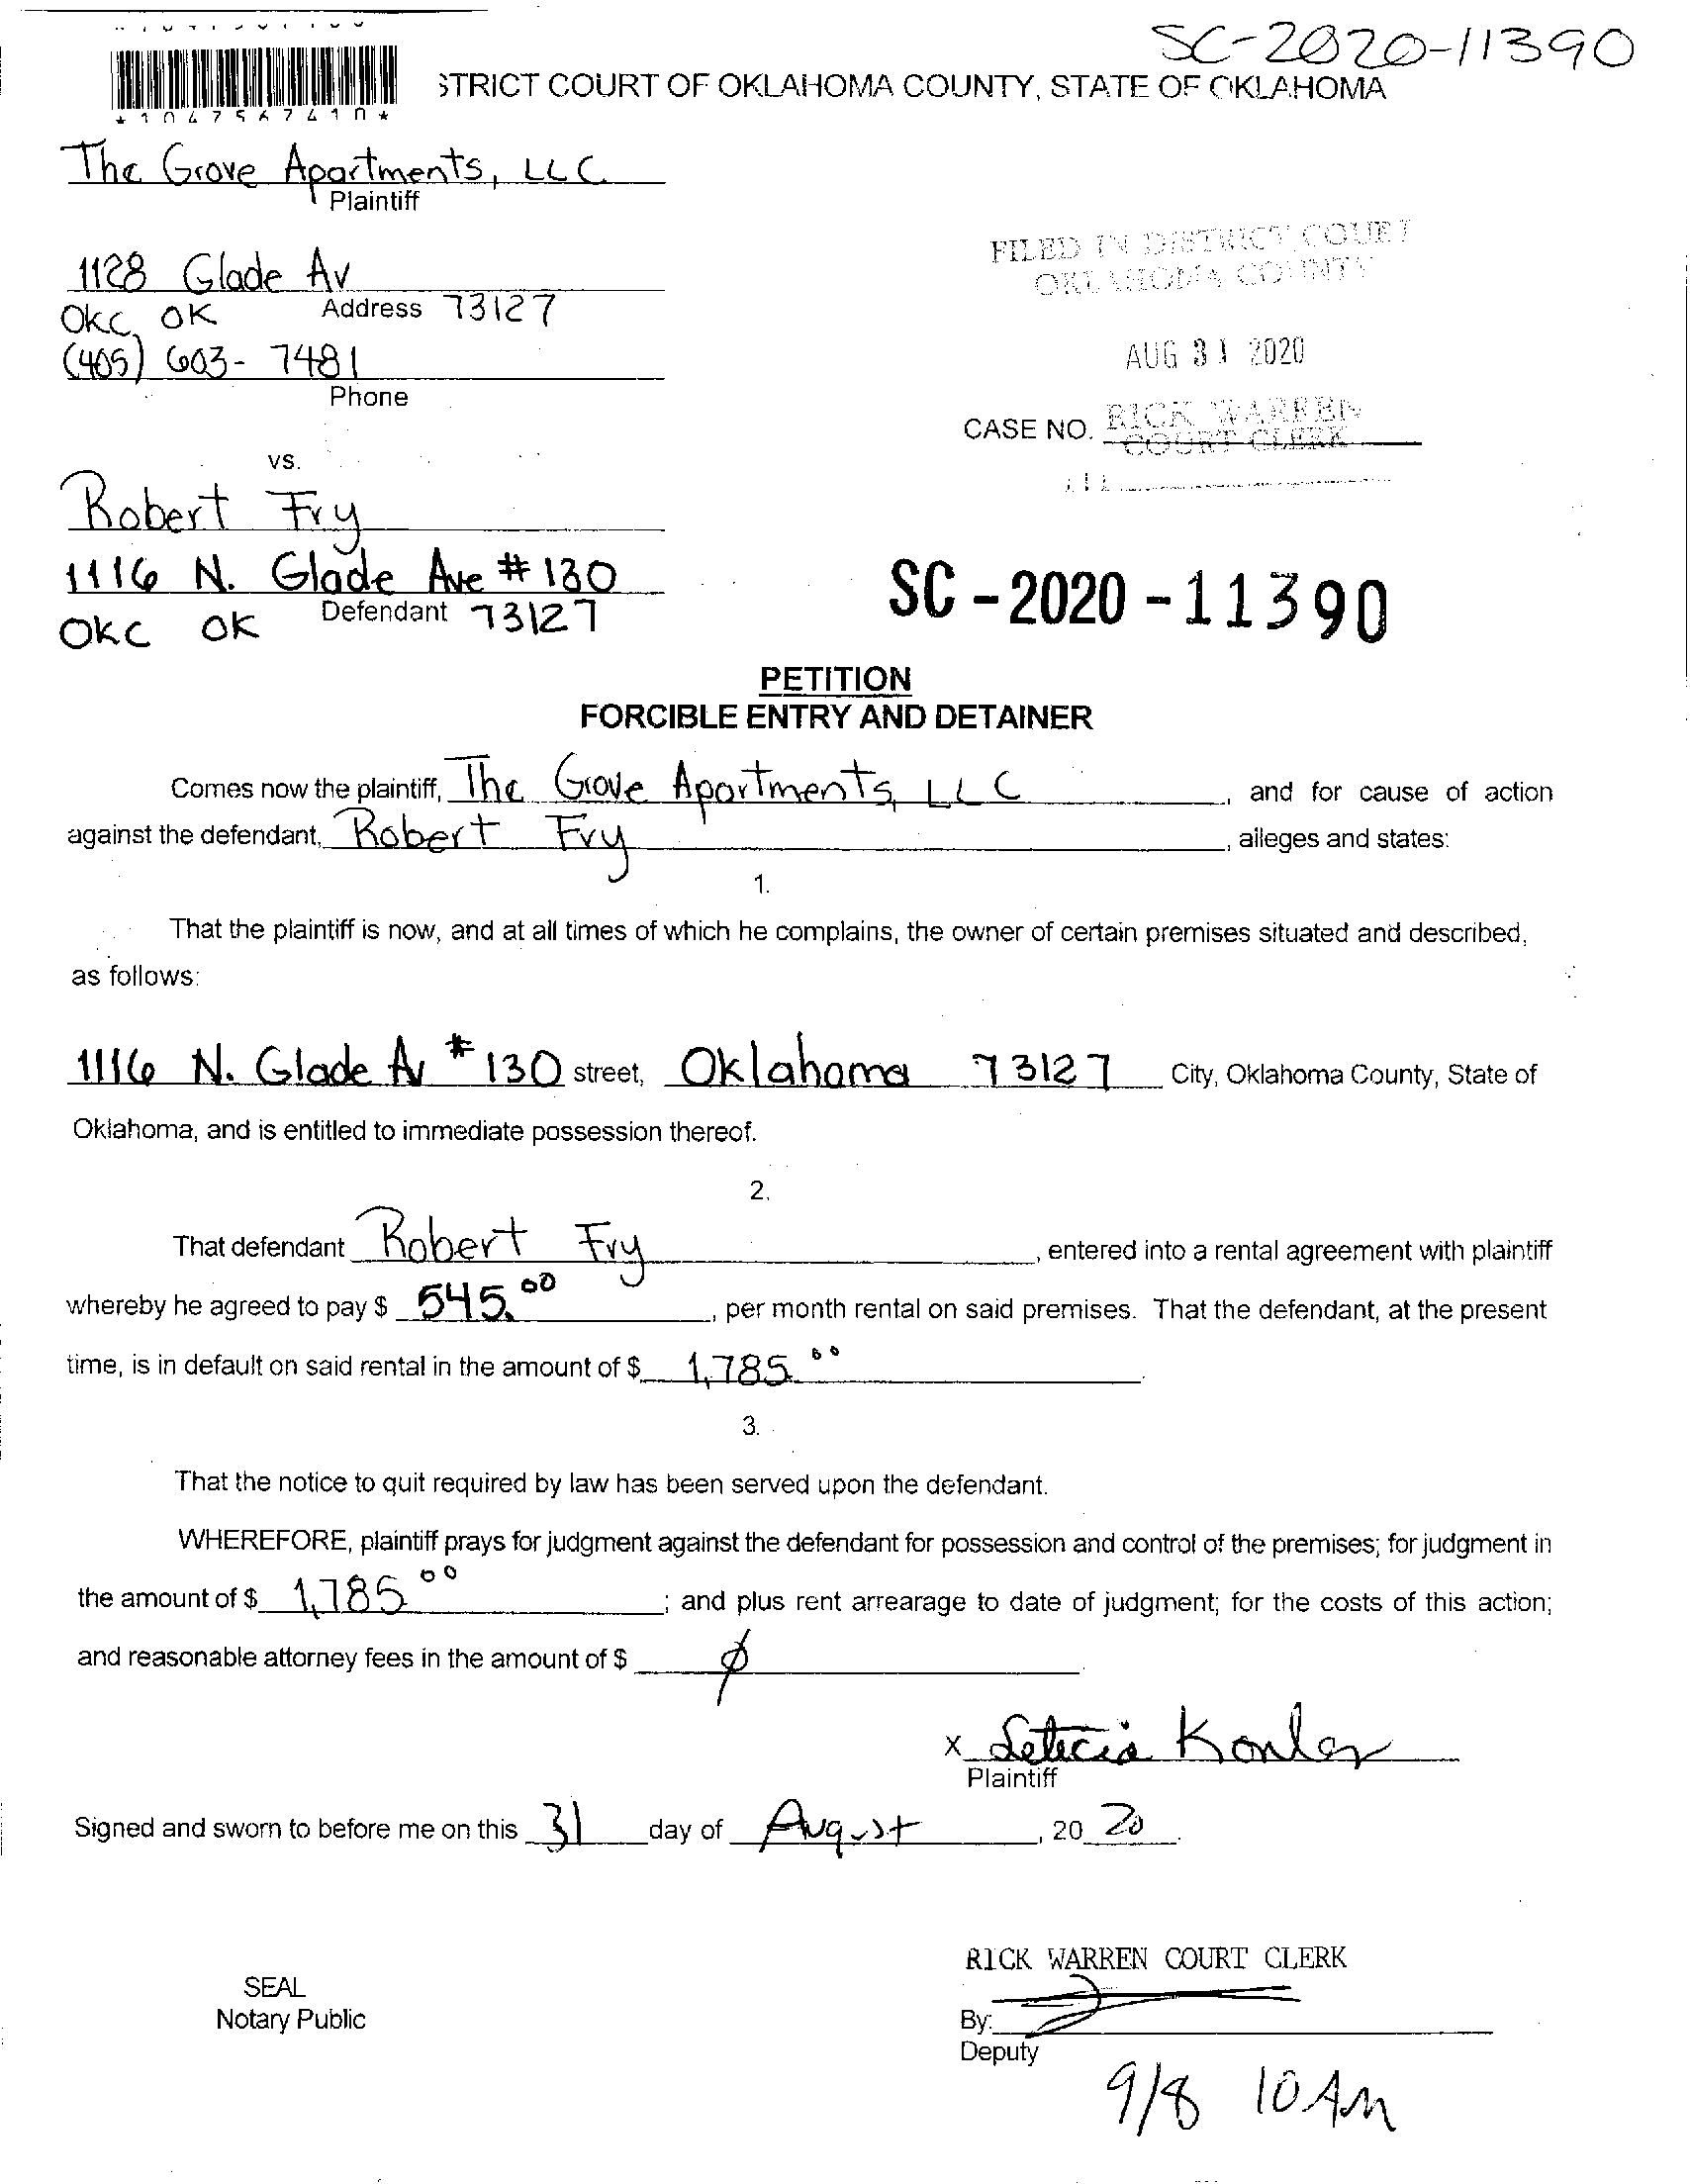 SC-2020-11390
STRICT COURT OF OKLAHOMA COUNTY, STATE OF OKLAHOMA
*1047567410*
The Grove Apartments, LLC
Plaintiff
1128 Glade Av
Address
OKC, OK 73127
(405) 603-7481
Phone
FILED IN DISTRICT COURT
OKLAHOMA COUNTY
AUG 31 2020
RICK WARREN
CASE NO.
COURT CLERK
vs.
Robert Fry
1116 N. Glade Ave # 130
Defendant
OKC OK 73127
SC-2020-11390
PETITION
FORCIBLE ENTRY AND DETAINER
Comes now the plaintiff, The Grove Apartments, LLC, and for cause of action
against the defendant, Robert Fry, alleges and states:
1.
That the plaintiff is now, and at all times of which he complains, the owner of certain premises situated and described,
as follows:
1116 N. Glade Av #130 street, Oklahoma 73127 City, Oklahoma County, State of
Oklahoma, and is entitled to immediate possession thereof.
2.
That defendant Robert Fry, entered into a rental agreement with plaintiff
whereby he agreed to pay $ 545.00, per month rental on said premises. That the defendant, at the present
time, is in default on said rental in the amount of $ 1,785.00.
3.
That the notice to quit required by law has been served upon the defendant.
WHEREFORE, plaintiff prays for judgment against the defendant for possession and control of the premises; for judgment in
the amount of $ 1,785 00; and plus rent arrearage to date of judgment; for the costs of this action;
and reasonable attorney fees in the amount of $ ∅.
x Leticia
Plaintiff
Signed and sworn to before me on this 31 day of August, 20 20.
RICK WARREN COURT CLERK
SEAL
Notary Public
By:
Deputy
9/8 10 AM